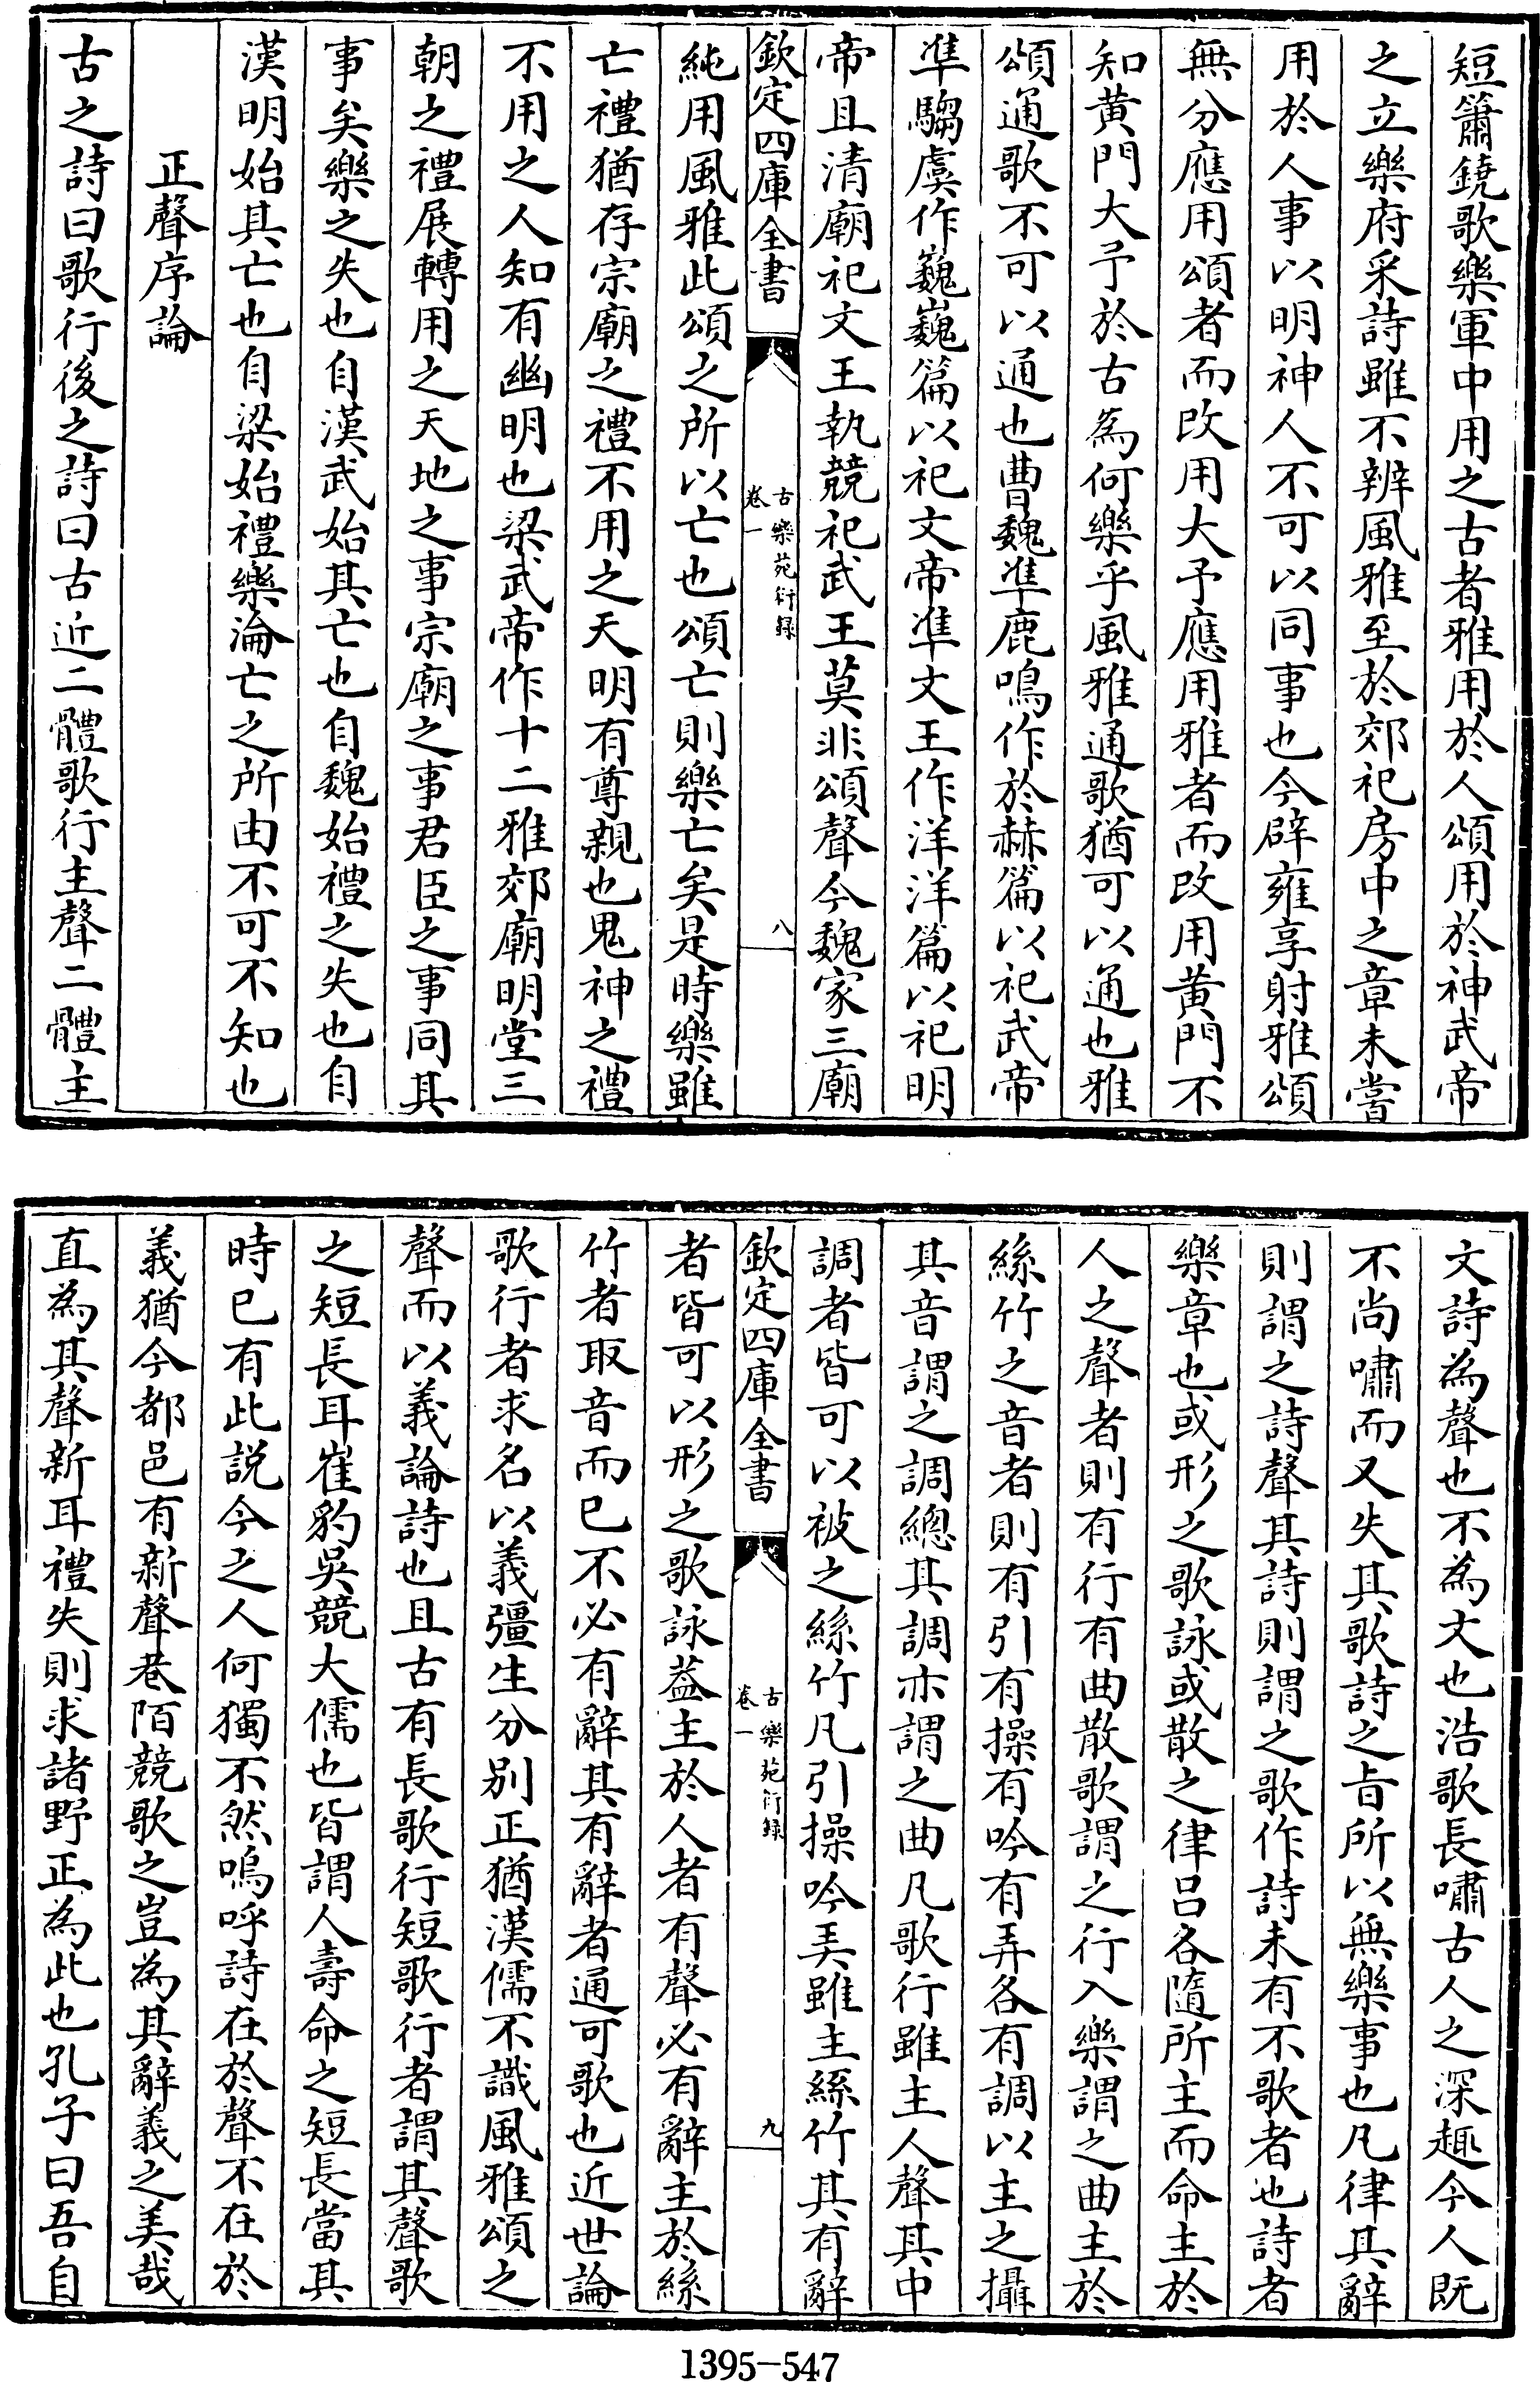 短簫鐃歌樂軍中用之古者雅用於人頌用於神武帝
之立樂府采詩雖不辨風雅至於郊祀房中之章未嘗
用於人事以明神人不可以同事也今辟雍享射雅頌
無分應用頌者而改用大予應用雅者而改用黄門不
知黄門大予於古為何樂乎風雅通歌猶可以通也雅
頌通歌不可以通也曹魏凖鹿鳴作於赫篇以祀武帝
凖騶虞作巍巍篇以祀文帝凖文王作洋洋篇以祀明
帝且清廟祀文王執競祀武王莫非頌聲今魏家三廟
欽定四庫全書
古樂苑衍録
卷一
八
純用風雅此頌之所以亡也頌亡則樂亡矣是時樂雖
亡禮猶存宗廟之禮不用之天明有尊親也鬼神之禮
不用之人知有幽明也梁武帝作十二雅郊廟明堂三
朝之禮展轉用之天地之事宗廟之事君臣之事同其
事矣樂之失也自漢武始其亡也自魏始禮之失也自
漢明始其亡也自梁始禮樂淪亡之所由不可不知也
正聲序論
古之詩曰歌行後之詩曰古近二體歌行主聲二體主
文詩為聲也不為文也浩歌長嘯古人之深趣今人既
不尚嘯而又失其歌詩之㫖所以無樂事也凡律其辭
則謂之詩聲其詩則謂之歌作詩未有不歌者也詩者
樂章也或形之歌詠或散之律吕各隨所主而命主於
人之聲者則有行有曲散歌謂之行入樂謂之曲主於
絲竹之音者則有引有操有吟有弄各有調以主之攝
其音謂之調總其調亦謂之曲凡歌行雖主人聲其中
調者皆可以被之絲竹凡引操吟弄雖主絲竹其有辭
欽定四庫全書
古樂苑衍録
卷一
九
者皆可以形之歌詠葢主於人者有聲必有辭主於絲
竹者取音而已不必有辭其有辭者通可歌也近世論
歌行者求名以義彊生分别正猶漢儒不識風雅頌之
聲而以義論詩也且古有長歌行短歌行者謂其聲歌
之短長耳崔豹吳競大儒也皆謂人壽命之短長當其
時已有此説今之人何獨不然嗚呼詩在於聲不在於
義猶今都邑有新聲巷陌競歌之豈為其辭義之美哉
直為其聲新耳禮失則求諸野正為此也孔子曰吾自
1395-547